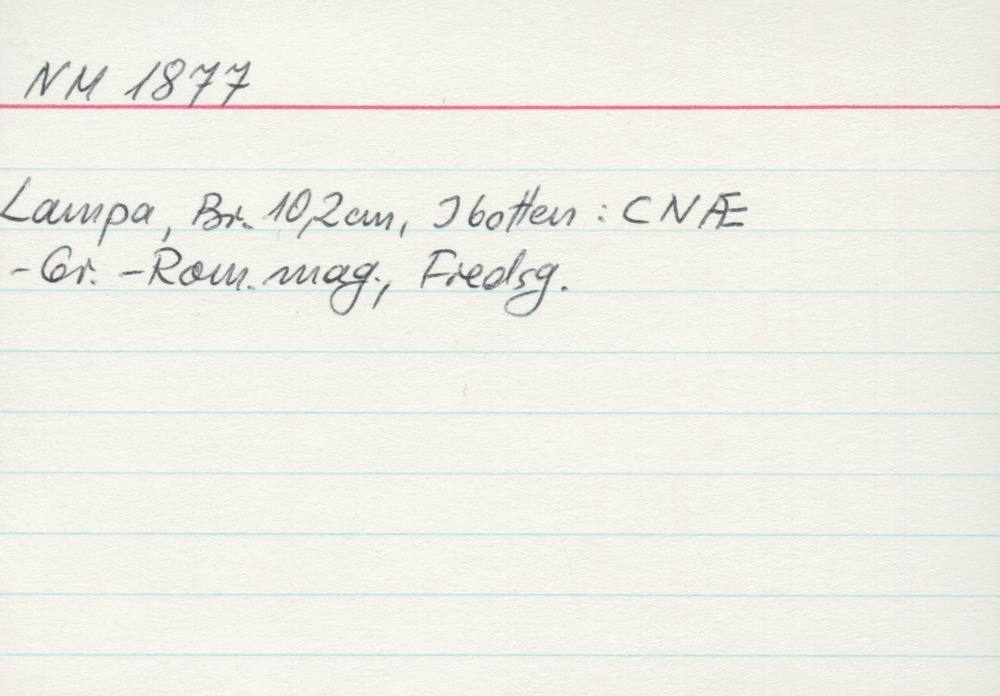 NM 1877
Lampa, Br. 10,2cm, I botten : CNÆ
-Gr. -Rom. mag., Fredsg.